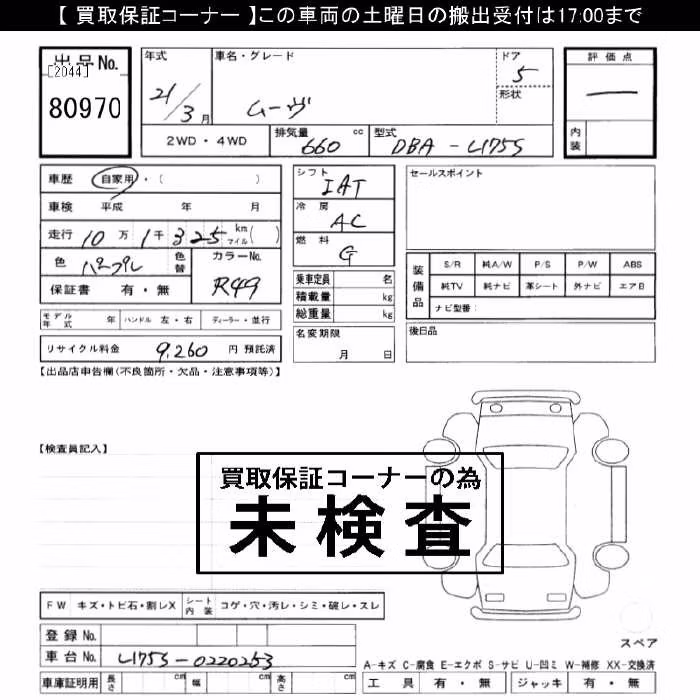 【 買取保証コーナー 】この車両の土曜日の搬出受付は17:00まで
出品No.
[2044]
80970
年式
21/3月
車名・グレード
ムーヴ
ドア
5
形状
評価点
—
内装
2WD・4WD
排気量 660 cc
型式 DBA-L175S
車歴 自家用・( )
車検 平成 年 月
走行 10万1千325 km マイル( )
色 パープル
色替
カラーNo.
R49
保証書 有・無
モデル年式 年 ハンドル 左・右 ディーラー・並行
リサイクル料金 9,260 円 預託済
シフト
IAT
冷房
AC
燃料
G
乗車定員 名
積載量 kg
総重量 kg
名変期限
月 日
セールスポイント
装備品
S/R 純A/W P/S P/W ABS
純TV 純ナビ 革シート 外ナビ エアB
ナビ型番:
後日品
【出品店申告欄(不良箇所・欠品・注意事項等)】
【検査員記入】
買取保証コーナーの為
未検査
FW キズ・トビ石・割レX
シート内装 コゲ・穴・汚レ・シミ・破レ・スレ
登録No.
車台No. L175S-0220253
車庫証明用 長さ cm 幅 cm 高さ cm
スペア
A-キズ C-腐食 E-エクボ S-サビ U-凹ミ W-補修 XX-交換済
工具 有・無 ジャッキ 有・無